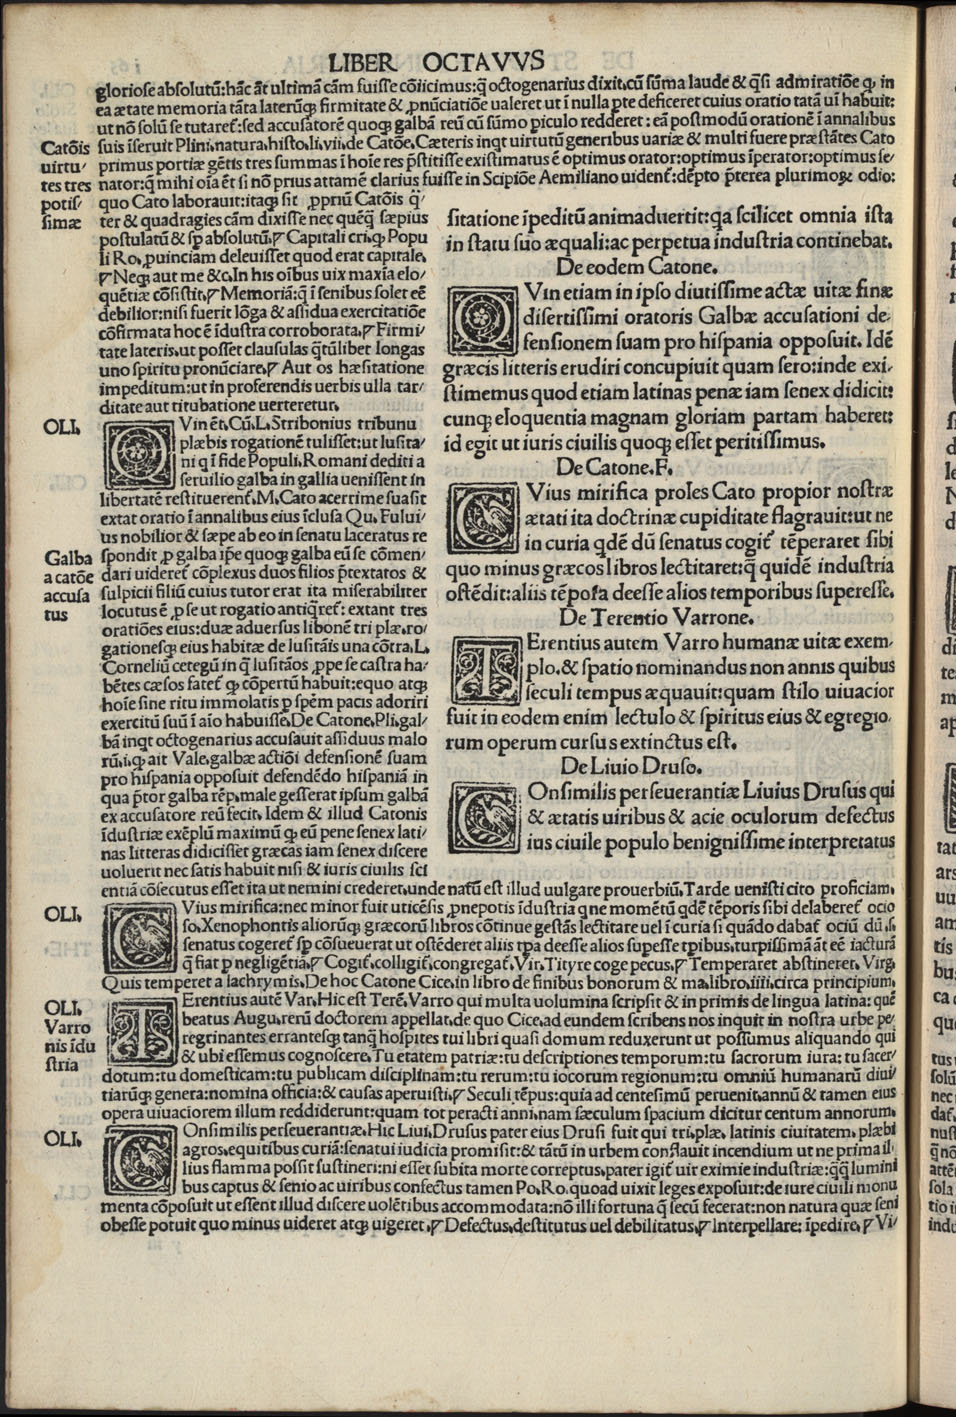 LIBER OCTAVVS
gloriose absolutū:hāc āt ultimā cām fuisse cōiicimus:q̄ octogenarius dixit,cū sūma laude & q̄si admiratiōe ꝙ in
ea ætate memoria tāta laterūꝗ firmitate & ꝓnūciatiōe ualeret ut ī nulla ꝑte deficeret cuius oratio tatā uī habuit:
ut nō solū se tutaret᷑:sed accusatorē quoꝗ galbā reū cū sūmo piculo redderet : eā postmodū orationē ī annalibus
suis īseruit Plini,natura,histo,li,vii,de Catōe,Cæteris inqt uirtutū generibus uariæ & multi fuere præstātes Cato
primus portiæ gētis tres summas ī hoīe res p̄stitisse existimatus ē optimus orator:optimus īperator:optimus se/
nator:q̄ mihi oīa ēt si nō prius attamē clarius fuisse in Scipiōe Aemiliano uident᷑:dēpto p̄terea plurimoꝝ odio:
Catōis
uirtu/
tes tres
potis/
simæ
quo Cato laborauit:itaꝗ sit ꝓpriū Catōis q̄/
ter & quadragies cām dixisse nec quēq̄ sæpius
postulatū & sꝑ absolutū,ꝑ Capitali cri,ꝙ Popu
li Ro,ꝓuinciam deleuisset quod erat capitale,
ꝑ Neꝗ aut me &c,In his oībus uix maxīa elo/
quētiæ cōsistit,ꝑ Memoriā:q̄ ī senibus solet eē
debilior:nisi fuerit lōga & assidua exercitatiōe
cōfirmata hoc ē īdustra corroborata,ꝑ Firmi/
tate lateris,ut posset clausulas q̄tūlibet longas
uno spiritu pronūciare,ꝑ Aut os hæsitatione
impeditum:ut in proferendis uerbis ulla tar/
ditate aut titubatione uerteretur,
OLI,
QVin ēt,Cū,L,Stribonius tribunu
plæbis rogationē tulisset:ut lusita/
ni q ī fide Populi,Romani dediti a
seruilio galba in gallia uenissent in
libertatē restituerent᷑,M,Cato acertime suasit
extat oratio ī annalibus eius īclusa Qu,Fului/
us nobilior & sæpe ab eo in senatu laceratus re
Galba
a catōe
accusa
tus
spondit ꝓ galba ip̄e quoꝗ galba eū se cōmen/
dari uideret᷑ cōplexus duos filios p̄textatos &
sulpicii filiū cuius tutor erat ita miserabiliter
locutus ē ꝓ se ut rogatio antiq̄ret᷑: extant tres
oratiōes eius:duæ aduersus libonē tri plæ,ro/
gationesꝗ eius habitæ de lusitāis una cōtra,L,
Corneliū cetegū in q̄ lusitāos ꝓpe se castra ha/
bētes cæsos fatet᷑ ꝙ cōpertū habuit:equo atꝗ
hoīe sine ritu immolatis ꝑ spēm pacis adoriri
exercitū suū ī aīo habuisse,De Catone,Pli,gal/
bā inqt octogenarius accusauit assiduus malo
rū,i,ꝙ ait Vale,galbæ actiōi defensionē suam
pro hispania opposuit defendēdo hispaniā in
qua p̄tor galba rēp,male gesserat ipsum galbā
ex accusatore reū fecit, Idem & illud Catonis
īdustriæ exēplū maximū ꝙ eū pene senex lati/
nas litteras didicisset græcas iam senex discere
uoluerit nec satis habuit nisi & iuris ciuilis sci
sitatione īpeditū animaduertit:qa scilicet omnia ista
in statu suo æquali:ac perpetua industria continebat,
De eodem Catone,
QVin etiam in ipso diutissime actæ uitæ finæ
disertissimi oratoris Galbæ accusationi de/
fensionem suam pro hispania opposuit, Idē
græcis litteris erudiri concupiuit quam sero:inde exi/
stimemus quod etiam latinas penæ iam senex didicit:
cunꝗ eloquentia magnam gloriam partam haberet:
id egit ut iuris ciuilis quoꝗ esset peritissimus,
De Catone,F,
CVius mirifica proles Cato propior nostræ
ætati ita doctrinæ cupiditate flagrauit:ut ne
in curia qdē dū senatus cogit᷑ tēperaret sibi
quo minus græcos libros lectitaret:q̄ quidē industria
ostēdit:aliis tēpora deesse alios temporibus superesse,
De Terentio Varrone,
TErentius autem Varro humanæ uitæ exem/
plo,& spatio nominandus non annis quibus
seculi tempus æquauit:quam stilo uiuacior
fuit in eodem enim lectulo & spiritus eius & egregio/
rum operum cursus extinctus est,
De Liuio Druso,
COnsimilis perseuerantiæ Liuius Drusus qui
& ætatis uiribus & acie oculorum defectus
ius ciuile populo benignissime interpretatus
entiā cōsecutus esset ita ut nemini crederet,unde natū est illud uulgare prouerbiū,Tarde uenisti cito proficiam,
OLI,
CVius mirifica:nec minor fuit uticēsis ꝓnepotis īdustria q ne momētū qdē tēporis sibi delaberet᷑ ocio
so,Xenophontis aliorūꝗ græcorū libros cōtinue gestās lectitare uel ī curia si quādo dabat᷑ ociū dū,s,
senatus cogeret᷑ sꝑ cōsueuerat ut ostēderet aliis tꝑa deesse alios suꝑesse tꝑibus,turpissimā āt eē iacturā
q̄ fiat ꝑ negligētiā,ꝑ Cogit᷑,colligit᷑,congregat᷑,Vir,Tityre coge pecus,ꝑ Temperaret abstineret, Virg,
Quis temperet a lachrymis,De hoc Catone Cice,in libro de finibus bonorum & ma,libro,iiii,circa principium,
OLI,
Varro
nis īdu
stria
TErentius autē Var,Hic est Terē,Varro qui multa uolumina scripsit & in primis de lingua latina:quē
beatus Augu,rerū doctorem appellat,de quo Cice,ad eundem scribens nos inquit in nostra urbe pe/
regrinantes errantesꝗ tanq̄ hospites tui libri quasi domum reduxerunt ut possumus aliquando qui
& ubi essemus cognoscere,Tu etatem patriæ:tu descriptiones temporum:tu sacrorum iura: tu sacer/
dotum:tu domesticam:tu publicam disciplinam:tu rerum:tu iocorum regionum:tu omniū humanarū diui/
tiarūꝗ genera:nomina officia:& causas aperuisti,ꝑ Seculi tēpus:quia ad centesimū peruenit,annū & tamen eius
opera uiuaciorem illum reddiderunt:quam tot peracti anni,nam sæculum spacium dicitur centum annorum,
OLI,
COnsimilis perseuerantiæ,Hic Liui,Drusus pater eius Drusi fuit qui tri,plæ, latinis ciuitatem,plæbi
agros,equitibus curiā:senatui iudicia promisit:& tātū in urbem conflauit incendium ut ne prima il/
lius flamma possit sustineri:ni esset subita morte correptus,pater igit᷑ uir eximie industriæ:q̄q̄ lumini
bus captus & senio ac uiribus confectus tamen Po,Ro,quoad uixit leges exposuit:de iure ciuili monu
menta cōposuit ut essent illud discere uolētibus accommodata:nō illi fortuna q̄ secū fecerat:non natura quæ seni
obesse potuit quo minus uideret atꝗ uigeret,ꝑ Defectus,destitutus uel debilitatus,ꝑ Interpellare: īpedire,ꝑ Vi/